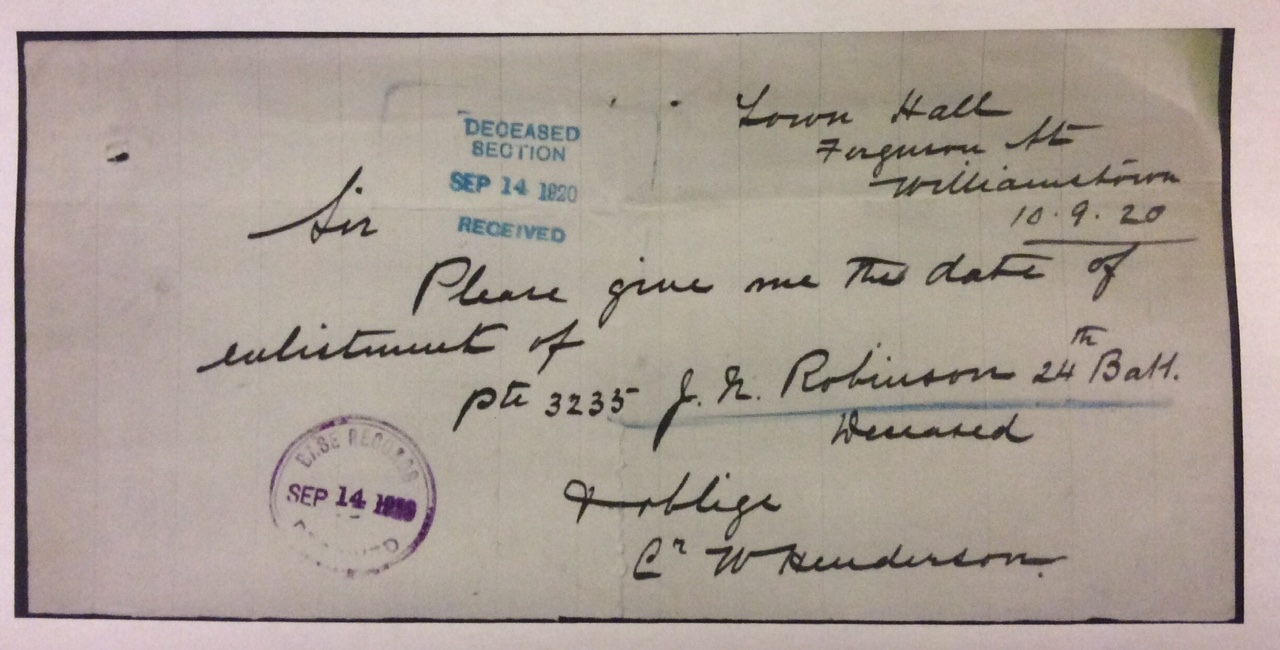 Town Hall
Ferguson St
Williamstown
10.9.20
DECEASED
SECTION
SEP 14 1920
RECEIVED
Sir
Please give me the date of
enlistment of
Pte 3235 J. N. Robinson 24th Batt.
Deceased
& oblige
Cr W Henderson.
BASE RECORDS
SEP 14 1920
RECEIVED